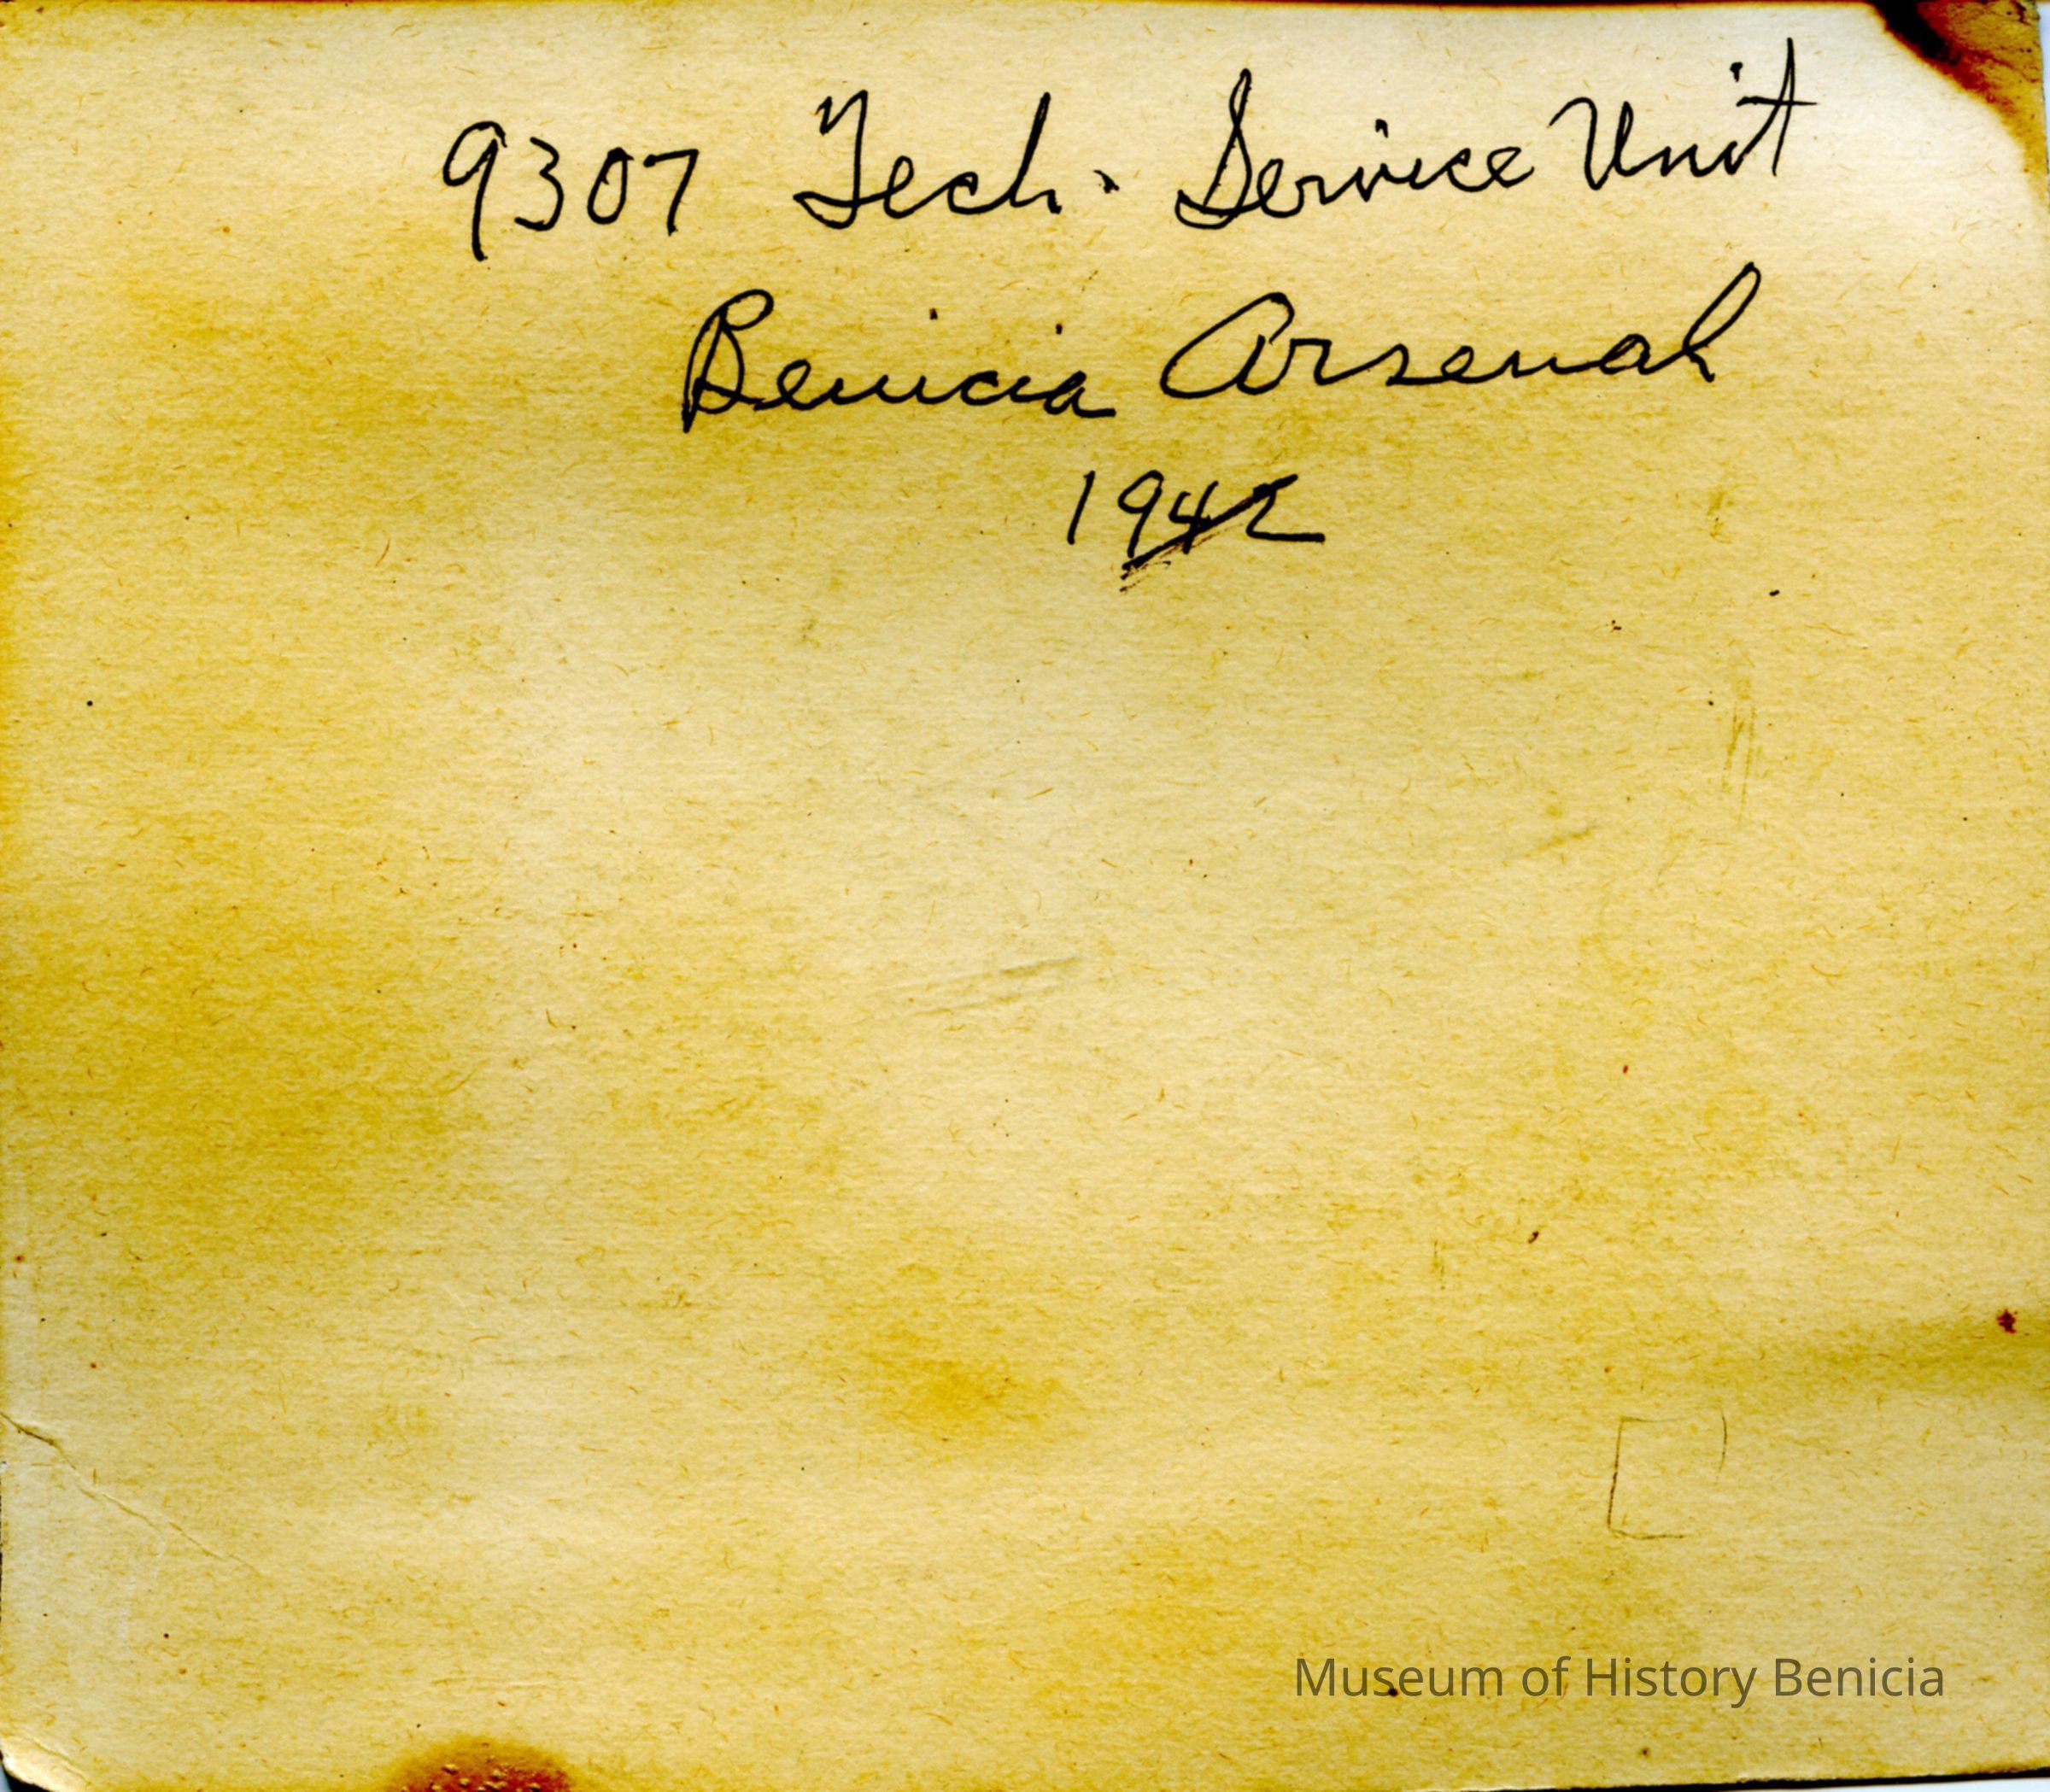 9307 Tech. Service Unit
Benicia Arsenal
1942
Museum of History Benicia